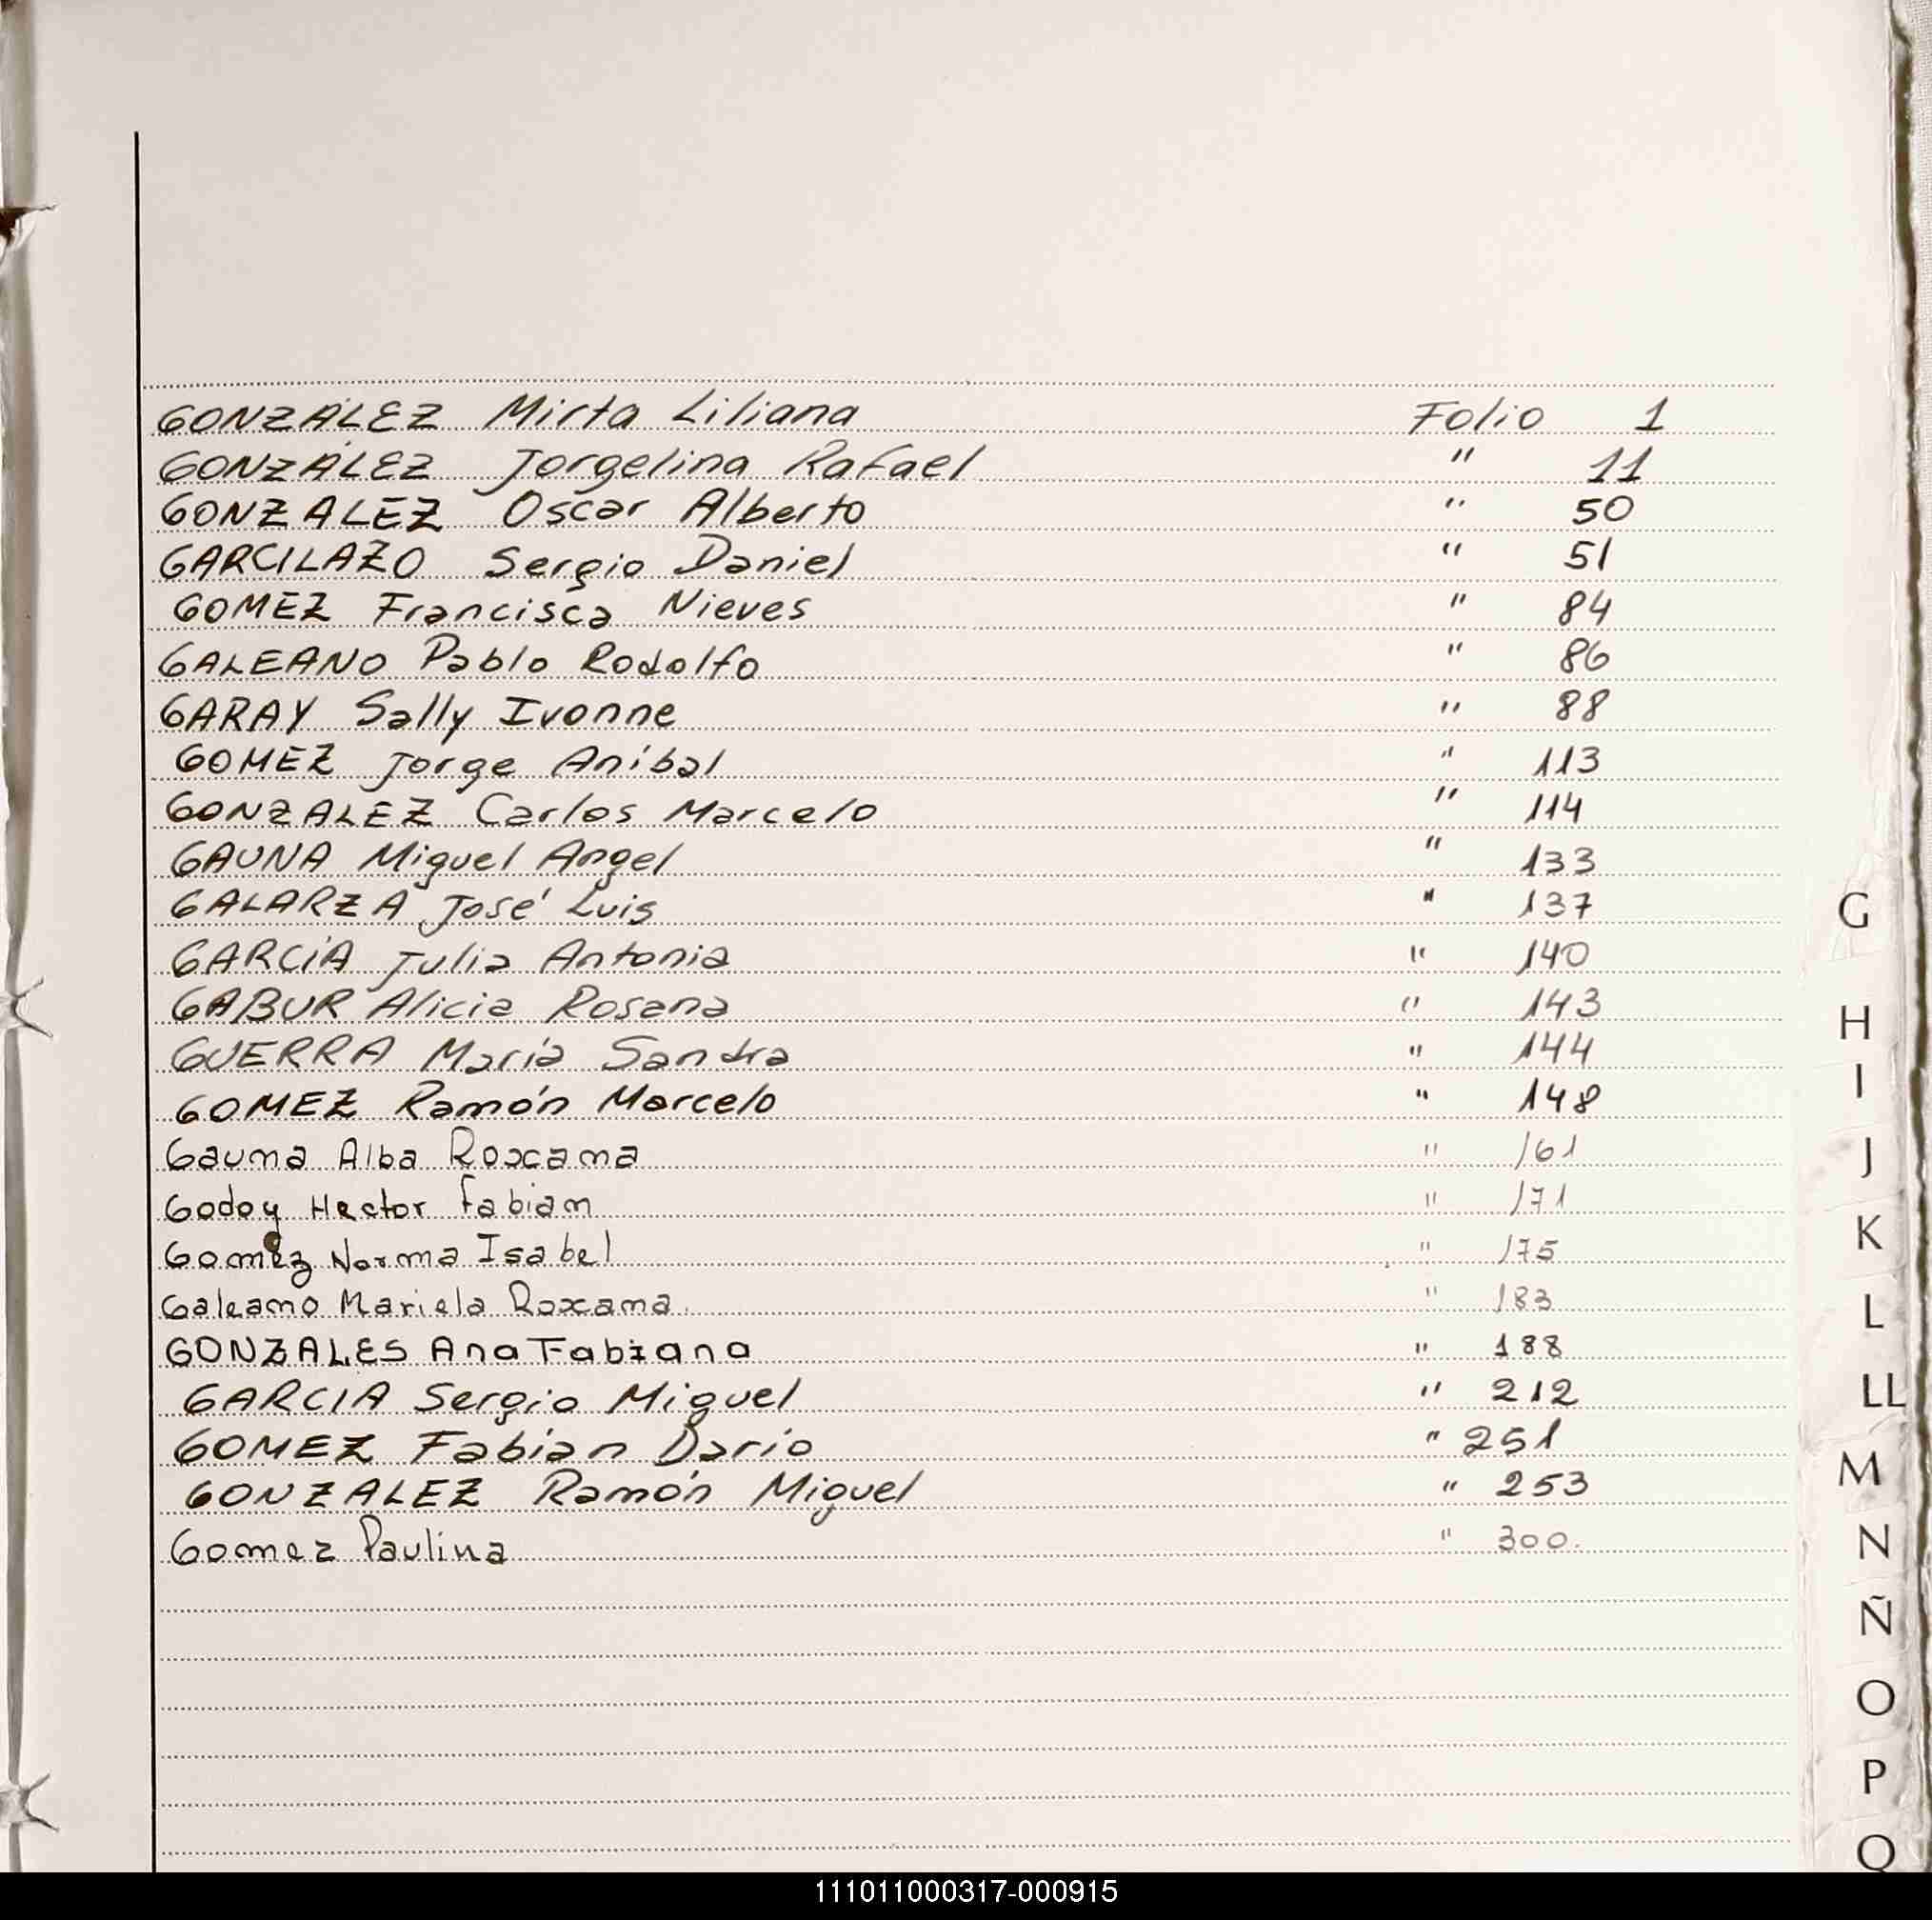 GONZÁLEZ Mirta Liliana Folio 1
GONZÁLEZ Jorgelina Rafael " 11
GONZALEZ Oscar Alberto " 50
GARCILAZO Sergio Daniel " 51
GOMEZ Francisca Nieves " 84
GALEANO Pablo Rodolfo " 86
GARAY Sally Ivonne " 88
GOMEZ Jorge Aníbal " 113
GONZALEZ Carlos Marcelo " 114
GAUNA Miguel Angel " 133
GALARZA José Luis " 137
GARCÍA Julia Antonia " 140
GABUR Alicia Rosana " 143
GUERRA María Sandra " 144
GOMEZ Ramón Marcelo " 148
Gauna Alba Roxana " 161
Godoy Hector Fabian " 171
Gomez Norma Isabel " 175
Galeano Mariela Roxana. " 183
GONZALES Ana Fabiana " 188
GARCIA Sergio Miguel " 212
GOMEZ Fabian Darío " 251
GONZALEZ Ramón Miguel " 253
Gomez Paulina " 300.
G
H
I
J
K
L
LL
M
N
Ñ
O
P
Q
111011000317-000915